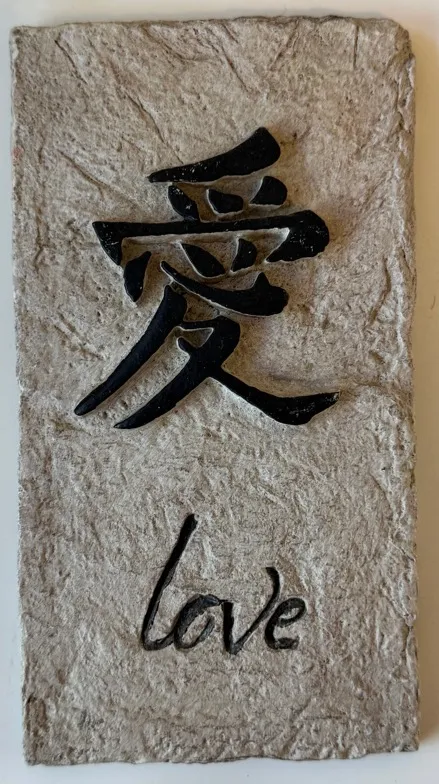 愛
love